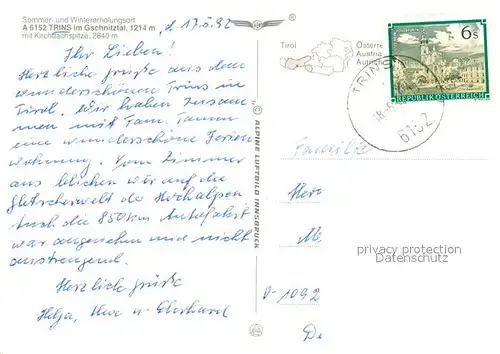 Sommer- und Wintererholungsort
A 6152 TRINS im Gschnitztal, 1214 m
mit Kirchdachspitze, 2840 m
d. 17.5.92
Ihr Lieben!
Herzliche Grüße aus dem
wunderschönen Trins in
Tirol. Wir haben zusam
men mit Fam.
eine wunderschöne Ferien
wohnung. Vom Zimmer
aus blicken wir auf die
Gletscherwelt der Hochalpen
Auch die 850 km Autofahrt
war angenehm und nicht
anstrengend.
Herzliche Grüße
Helga, Uwe u. Eberhard
© ALPINE LUFTBILD INNSBRUCK
Tirol
Österre
Austria
TRINS
6152
6 S
REPUBLIK ÖSTERREICH
Familie
Her
privacy protection
VINTAGE MEMORIES
D-1092